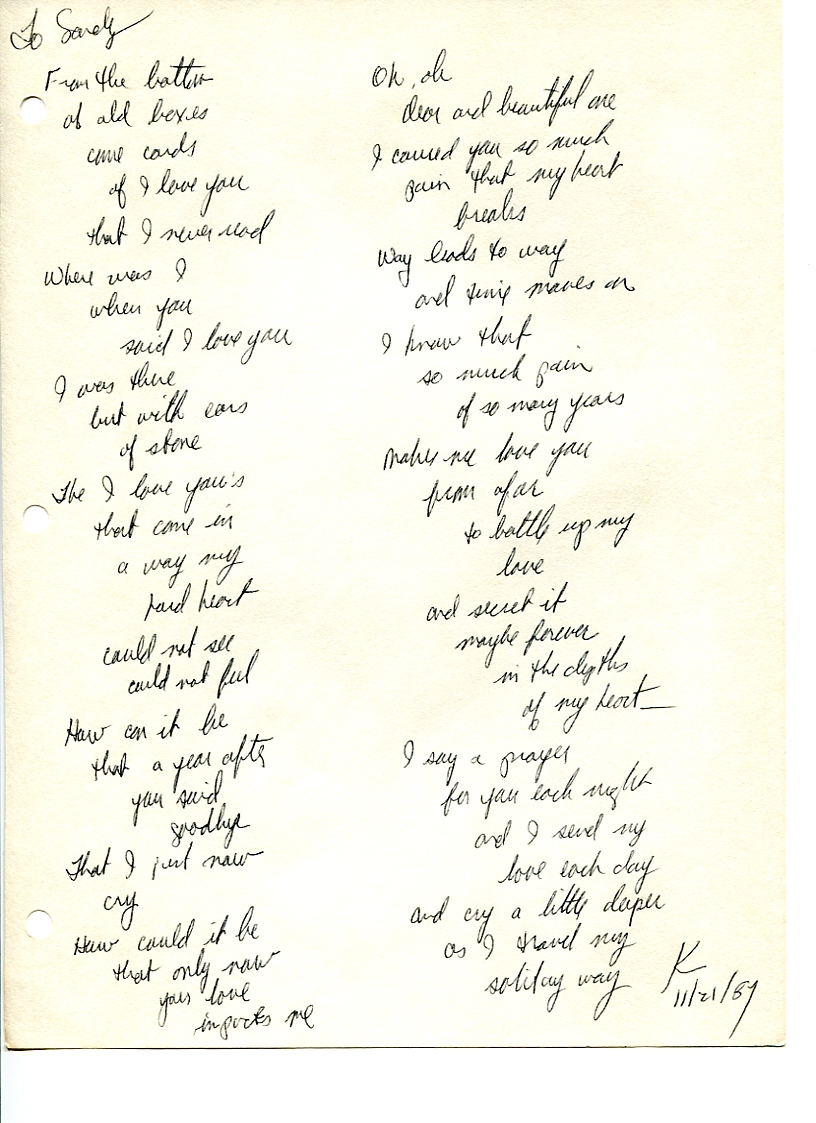 To Sandy
From the bottom
of old boxes
come cards
of I love you
that I never read
Where was I
when you
said I love you
I was there
but with ears
of stone
The I love you's
that came in
a way my
hard heart
could not see
could not feel
How can it be
that a year after
you said
goodbye
That I just now
cry
How could it be
that only now
your love
impacts me
Oh, oh
dear and beautiful one
I caused you so much
pain that my heart
breaks
Way leads to way
and time moves on
I know that
so much pain
of so many years
Makes me love you
from afar
to bottle up my
love
and secret it
maybe forever
in the depths
of my heart—
I say a prayer
for you each night
and I send my
love each day
and cry a little deeper
as I travel my
solitary way
K
11/21/87